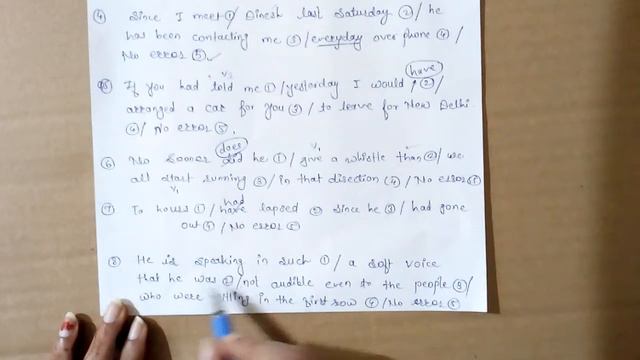 ④ Since I meet ①/ Dinesh last Saturday ②/ he
has been contacting me ③/ everyday over phone ④/
No error ⑤
⑤ If you had told me ①/ yesterday I would have ②/
arranged a car for you ③/ to leave for New Delhi
④/ No error ⑤.
⑥ No sooner did does he ①/ give a whistle than ②/ we
all start running ③/ in that direction ④/ No error ⑤
⑦ To hours ①/ have had lapsed ② since he ③/ had gone
out ④/ No error ⑤
⑧ He is speaking in such ①/ a soft voice
that he was ②/ not audible even to the people ③/
who were sitting in the first row ④/ No error ⑤